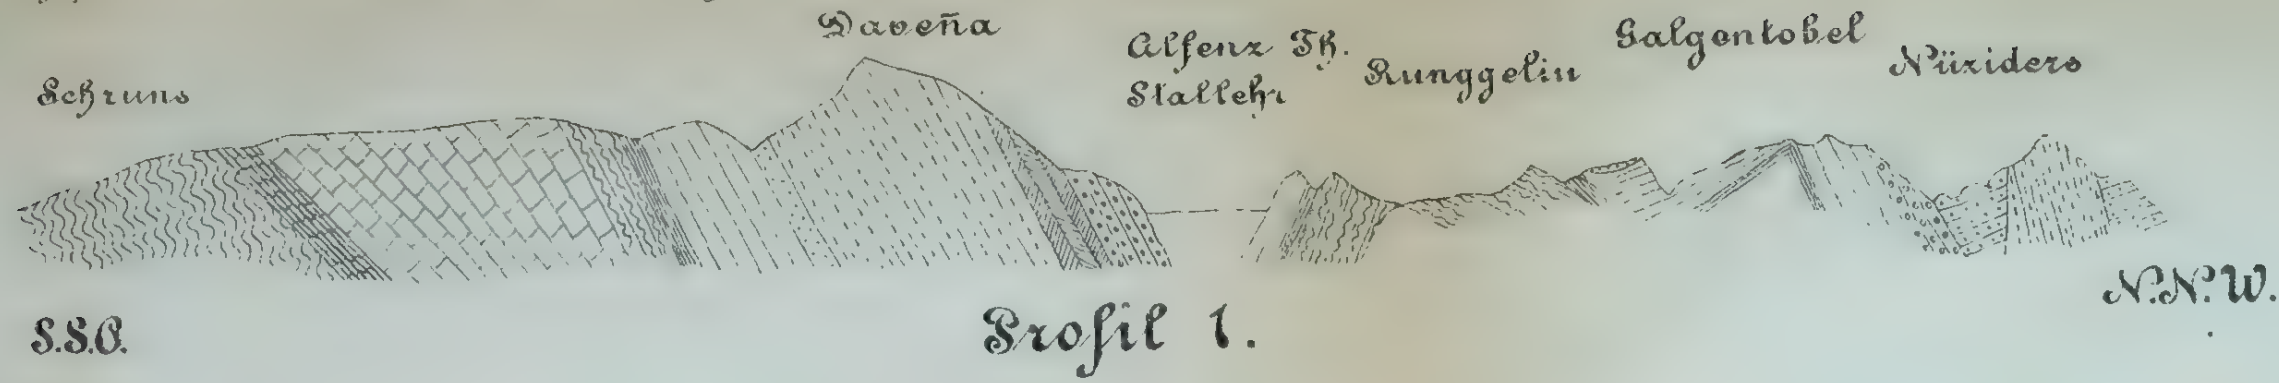 Schruns
Daveña
Alfenz Th.
Stallehr
Runggelin
Galgentobel
Nüziders
S.S.O.
Profil 1.
N.N.W.